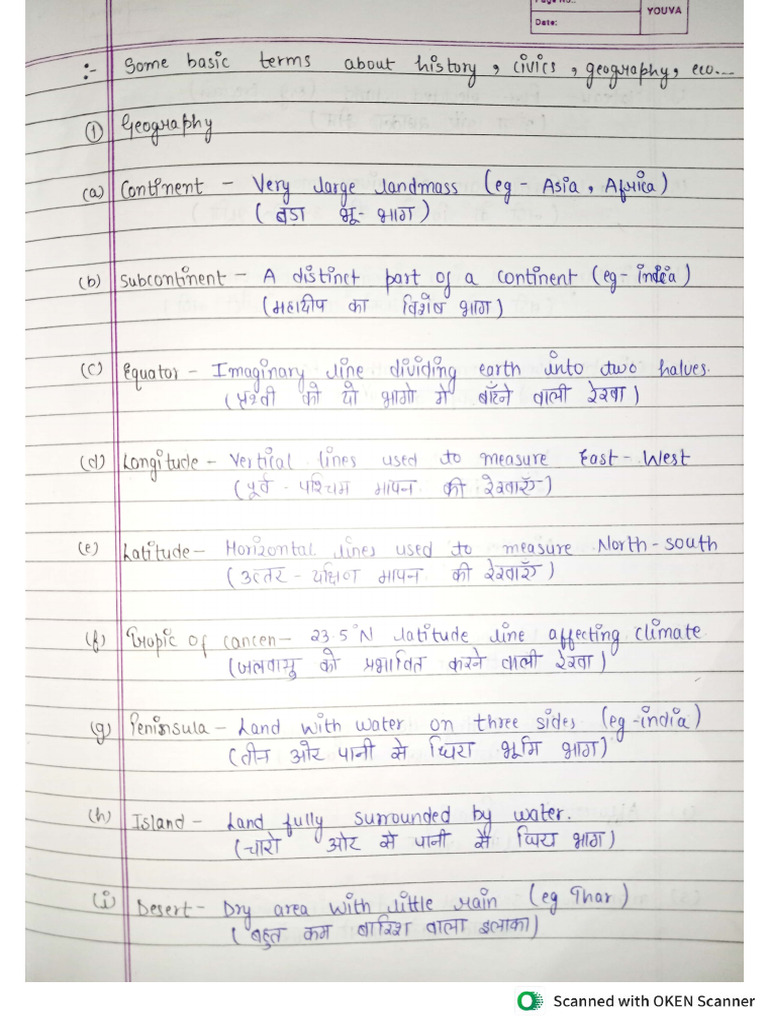 Page No.:
Date:
YOUVA
:- Some basic terms about history, civics, geography, eco...
① Geography
(a) Continent - Very large landmass (eg - Asia, Africa)
(बड़ा भू-भाग)
(b) Subcontinent - A distinct part of a continent (eg- india)
(महाद्वीप का विशेष भाग)
(c) Equator - Imaginary line dividing earth into two halves.
(पृथ्वी को दो भागो मे बाँटने वाली रेखा)
(d) Longitude - Vertical lines used to measure East-West
(पूर्व - पश्चिम मापन की रेखाएँ)
(e) Latitude - Horizontal lines used to measure North-south
(उत्तर - दक्षिण मापन की रेखाएँ)
(f) Tropic of cancen - 23.5°N latitude line affecting climate
(जलवायु को प्रभावित करने वाली रेखा)
(g) Peninsula - Land with water on three sides (eg-india)
(तीन ओर पानी से घिरा भूमि भाग)
(h) Island - Land fully surrounded by water.
(चारो ओर से पानी से घिरा भाग)
(i) Desert - Dry area with little rain (eg Thar)
(बहुत कम बारिश वाला इलाका)
Scanned with OKEN Scanner